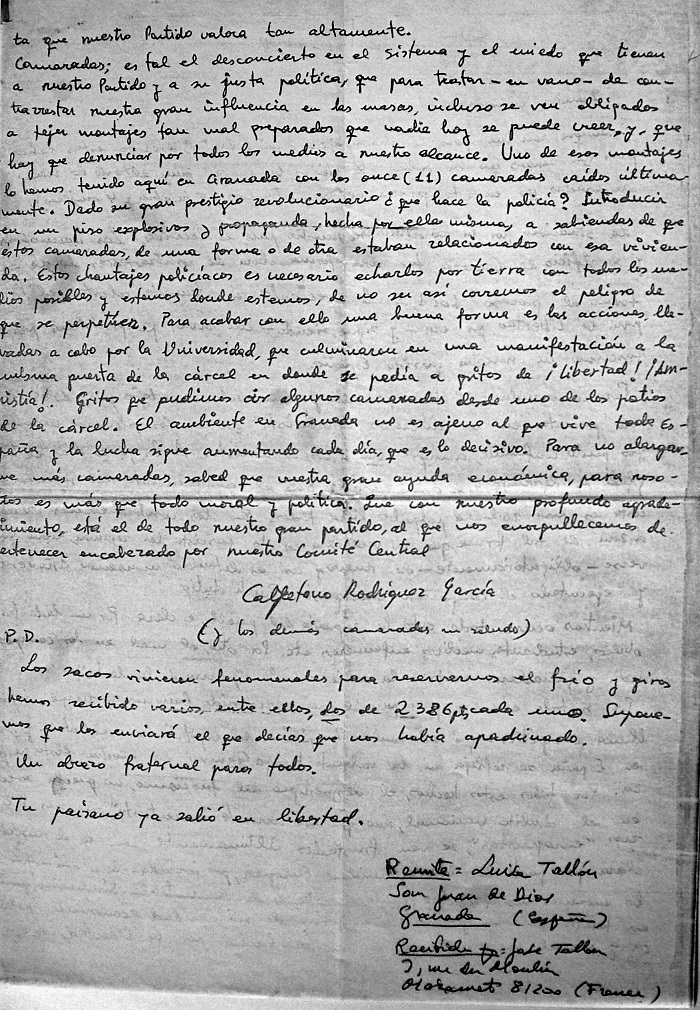 ta que nuestro Partido valora tan altamente.
Camaradas; es tal el desconcierto en el sistema y el miedo que tienen
a nuestro Partido y a su justa política, que para tratar - en vano - de con-
trarrestar nuestra gran influencia en las masas, incluso se ven obligados
a tejer montajes tan mal preparados que nadie hoy se puede creer, y, que
hay que denunciar por todos los medios a nuestro alcance. Uno de esos montajes
lo hemos tenido aquí en Granada con los once (11) camaradas caídos última-
mente. Dado su gran prestigio revolucionario ¿que hace la policía? Introducir
en un piso explosivos y propaganda, hecha por ella misma, a sabiendas de que
éstos camaradas, de una forma o de otra estaban relacionados con esa vivien-
da. Estos chantajes policíacos es necesario echarlos por tierra con todos los me-
dios posibles y estemos donde estemos, de no ser así corremos el peligro de
que se perpetúen. Para acabar con ello una buena forma es las acciones lle-
vadas a cabo por la Universidad, que culminaron en una manifestación a la
misma puerta de la cárcel en donde se pedía a gritos de ¡libertad! ¡Am-
nistía!. Gritos que pudimos oír algunos camaradas desde uno de los patios
de la cárcel. El ambiente en Granada no es ajeno al que vive toda Es-
paña y la lucha sigue aumentando cada día, que es lo decisivo. Para no alargar-
me más camaradas, sabed que vuestra gran ayuda económica, para noso-
tros es más que todo moral y política. Que con nuestro profundo agrade-
cimiento, está el de todo nuestro gran partido, al que nos enorgullecemos de
pertenecer encabezado por nuestro Comité Central
Rodríguez García
(y los demás camaradas un saludo)
P.D.
Los sacos vinieron fenomenales para reservarnos el frío y giros
hemos recibido varios, entre ellos, dos de 2.386 pts cada uno. Supone-
mos que los enviará el que decías que nos había apadrinado.
Un abrazo fraternal para todos.
Tu paisano ya salió en libertad.
Remite = Luisa Tallón
San Juan de Dios
Granada (España)
Recibida por = José Tallon
rue du Moulin
Mazamet 81200 (France)